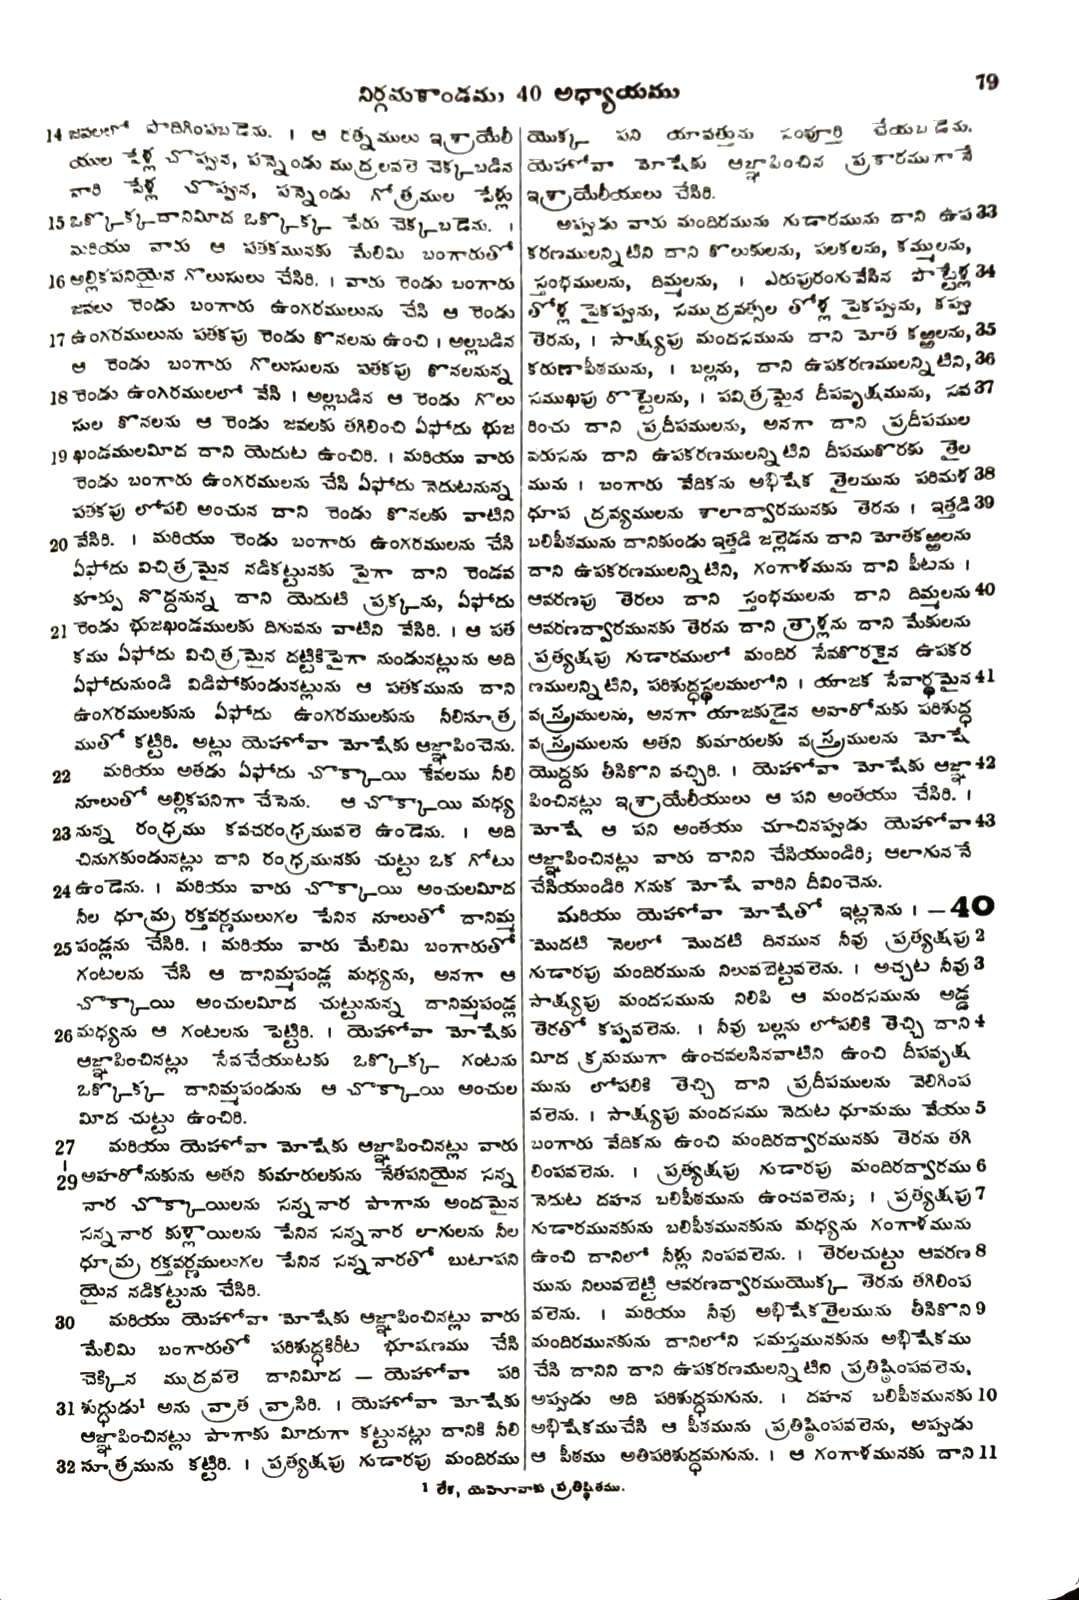 నిర్గమకాండము, 40 అధ్యాయము
79
14 జవలలో పొదిగింపబడెను. । ఆ రత్నములు ఇశ్రాయేలీ
యుల పేళ్ల చొప్పున, పన్నెండు ముద్రలవలె చెక్కబడిన
వారి పేళ్ల చొప్పున, పన్నెండు గోత్రముల పేళ్లు
15 ఒక్కొక్కదానిమీద ఒక్కొక్క పేరు చెక్కబడెను. ।
మరియు వారు ఆ పతకమునకు మేలిమి బంగారుతో
16 అల్లికపనియైన గొలుసులు చేసిరి. । వారు రెండు బంగారు
జవలు రెండు బంగారు ఉంగరములును చేసి ఆ రెండు
17 ఉంగరములును పతకపు రెండు కొనలను ఉంచి । అల్లబడిన
ఆ రెండు బంగారు గొలుసులను పతకపు కొనలనున్న
18 రెండు ఉంగరములలో వేసి । అల్లబడిన ఆ రెండు గొలు
సుల కొనలను ఆ రెండు జవలకు తగిలించి ఏఫోదు భుజ
19 ఖండములమీద దాని యెదుట ఉంచిరి. । మరియు వారు
రెండు బంగారు ఉంగరములను చేసి ఏఫోదు నెదుటనున్న
పతకపు లోపలి అంచున దాని రెండు కొనలకు వాటిని
20 వేసిరి. । మరియు రెండు బంగారు ఉంగరములను చేసి
ఏఫోదు విచిత్రమైన నడికట్టునకు పైగా దాని రెండవ
కూర్పు నొద్దనున్న దాని యెదుటి ప్రక్కను, ఏఫోదు
21 రెండు భుజఖండములకు దిగువను వాటిని వేసిరి. । ఆ పత
కము ఏఫోదు విచిత్రమైన దట్టికిపైగా నుండునట్లును అది
ఏఫోదునుండి విడిపోకుండునట్లును ఆ పతకమును దాని
ఉంగరములకును ఏఫోదు ఉంగరములకును నీలిసూత్ర
ముతో కట్టిరి. అట్లు యెహోవా మోషేకు ఆజ్ఞాపించెను.
22 మరియు అతడు ఏఫోదు చొక్కాయి కేవలము నీలి
నూలుతో అల్లికపనిగా చేసెను. ఆ చొక్కాయి మధ్య
23 నున్న రంధ్రము కవచరంధ్రమువలె ఉండెను. । అది
చినుగకుండునట్లు దాని రంధ్రమునకు చుట్టు ఒక గోటు
24 ఉండెను. । మరియు వారు చొక్కాయి అంచులమీద
నీల ధూమ్ర రక్తవర్ణములుగల పేనిన నూలుతో దానిమ్మ
25 పండ్లను చేసిరి. । మరియు వారు మేలిమి బంగారుతో
గంటలను చేసి ఆ దానిమ్మపండ్ల మధ్యను, అనగా ఆ
చొక్కాయి అంచులమీద చుట్టునున్న దానిమ్మపండ్ల
26 మధ్యను ఆ గంటలను పెట్టిరి. । యెహోవా మోషేకు
ఆజ్ఞాపించినట్లు సేవచేయుటకు ఒక్కొక్క గంటను
ఒక్కొక్క దానిమ్మపండును ఆ చొక్కాయి అంచుల
మీద చుట్టు ఉంచిరి.
27 మరియు యెహోవా మోషేకు ఆజ్ఞాపించినట్లు వారు
29 అహరోనుకును అతని కుమారులకును నేతపనియైన సన్న
నార చొక్కాయిలను సన్ననార పాగాను అందమైన
సన్ననార కుళ్లాయిలను పేనిన సన్ననార లాగులను నీల
ధూమ్ర రక్తవర్ణములుగల పేనిన సన్ననారతో బుటాపని
యైన నడికట్టును చేసిరి.
30 మరియు యెహోవా మోషేకు ఆజ్ఞాపించినట్లు వారు
మేలిమి బంగారుతో పరిశుద్ధకిరీట భూషణము చేసి
చెక్కిన ముద్రవలె దానిమీద — యెహోవా పరి
31 శుద్ధుడు¹ అను వ్రాత వ్రాసిరి. । యెహోవా మోషేకు
ఆజ్ఞాపించినట్లు పాగాకు మీదుగా కట్టునట్లు దానికి నీలి
32 సూత్రమును కట్టిరి. । ప్రత్యక్షపు గుడారపు మందిరము
యొక్క పని యావత్తును సంపూర్తి చేయబడెను.
యెహోవా మోషేకు ఆజ్ఞాపించిన ప్రకారముగానే
ఇశ్రాయేలీయులు చేసిరి.
అప్పుడు వారు మందిరమును గుడారమును దాని ఉప 33
కరణములన్నిటిని దాని కొలుకులను, పలకలను, కమ్ములను,
స్తంభములను, దిమ్మలను, । ఎరుపురంగువేసిన పొట్టేళ్ల 34
తోళ్ల పైకప్పును, సముద్రవత్సల తోళ్ల పైకప్పును, కప్పు
తెరను, । సాక్ష్యపు మందసమును దాని మోత కఱ్ఱలను, 35
కరుణాపీఠమును, । బల్లను, దాని ఉపకరణములన్నిటిని, 36
సముఖపు రొట్టెలను, । పవిత్రమైన దీపవృక్షమును, సవ 37
రించు దాని ప్రదీపములను, అనగా దాని ప్రదీపముల
వరుసను దాని ఉపకరణములన్నిటిని దీపముకొరకు తైల
మును । బంగారు వేదికను అభిషేక తైలమును పరిమళ 38
ధూప ద్రవ్యములను శాలాద్వారమునకు తెరను । ఇత్తడి 39
బలిపీఠమును దానికుండు ఇత్తడి జల్లెడను దాని మోతకఱ్ఱలను
దాని ఉపకరణములన్నిటిని, గంగాళమును దాని పీటను ।
ఆవరణపు తెరలు దాని స్తంభములను దాని దిమ్మలను 40
ఆవరణద్వారమునకు తెరను దాని త్రాళ్లను దాని మేకులను
ప్రత్యక్షపు గుడారములో మందిర సేవకొరకైన ఉపకర
ణములన్నిటిని, పరిశుద్ధస్థలములోని । యాజక సేవార్థమైన 41
వస్త్రములను, అనగా యాజకుడైన అహరోనుకు పరిశుద్ధ
వస్త్రములను అతని కుమారులకు వస్త్రములను మోషే
యొద్దకు తీసికొని వచ్చిరి. । యెహోవా మోషేకు ఆజ్ఞా 42
పించినట్లు ఇశ్రాయేలీయులు ఆ పని అంతయు చేసిరి. ।
మోషే ఆ పని అంతయు చూచినప్పుడు యెహోవా 43
ఆజ్ఞాపించినట్లు వారు దానిని చేసియుండిరి; ఆలాగుననే
చేసియుండిరి గనుక మోషే వారిని దీవించెను.
మరియు యెహోవా మోషేతో ఇట్లనెను । — 40
మొదటి నెలలో మొదటి దినమున నీవు ప్రత్యక్షపు 2
గుడారపు మందిరమును నిలువబెట్టవలెను. । అచ్చట నీవు 3
సాక్ష్యపు మందసమును నిలిపి ఆ మందసమును అడ్డ
తెరతో కప్పవలెను. । నీవు బల్లను లోపలికి తెచ్చి దాని 4
మీద క్రమముగా ఉంచవలసినవాటిని ఉంచి దీపవృక్ష
మును లోపలికి తెచ్చి దాని ప్రదీపములను వెలిగింప
వలెను. । సాక్ష్యపు మందసము నెదుట ధూమము వేయు 5
బంగారు వేదికను ఉంచి మందిరద్వారమునకు తెరను తగి
లింపవలెను. । ప్రత్యక్షపు గుడారపు మందిరద్వారము 6
నెదుట దహన బలిపీఠమును ఉంచవలెను; । ప్రత్యక్షపు 7
గుడారమునకును బలిపీఠమునకును మధ్యను గంగాళమును
ఉంచి దానిలో నీళ్లు నింపవలెను. । తెరలచుట్టు ఆవరణ 8
మును నిలువబెట్టి ఆవరణద్వారముయొక్క తెరను తగిలింప
వలెను. । మరియు నీవు అభిషేకతైలమును తీసికొని 9
మందిరమునకును దానిలోని సమస్తమునకును అభిషేకము
చేసి దానిని దాని ఉపకరణములన్నిటిని ప్రతిష్ఠింపవలెను,
అప్పుడు అది పరిశుద్ధమగును. । దహన బలిపీఠమునకు 10
అభిషేకముచేసి ఆ పీఠమును ప్రతిష్ఠింపవలెను, అప్పుడు
ఆ పీఠము అతిపరిశుద్ధమగును. । ఆ గంగాళమునకు దాని 11
1 లేక, యెహోవాకు ప్రతిష్ఠితము.